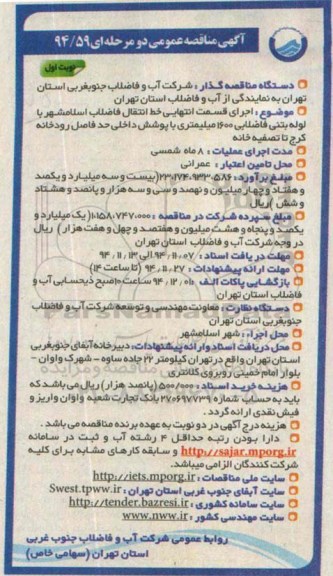 آگهی مناقصه عمومی دو مرحله‌ای ۹۴/۵۹
نوبت اول
دستگاه مناقصه گذار : شرکت آب و فاضلاب جنوبغربی استان
تهران به نمایندگی از آب و فاضلاب استان تهران
موضوع : اجرای قسمت انتهایی خط انتقال فاضلاب اسلامشهر با
لوله بتنی فاضلابی ۱۶۰۰ میلیمتری با پوشش داخلی حد فاصل رودخانه
کرج تا تصفیه خانه
مدت اجرای عملیات : ۸ ماه شمسی
محل تامین اعتبار : عمرانی
مبلغ برآورد : ۲۳،۱۷۴،۹۳۳،۵۸۶ (بیست و سه میلیارد و یکصد
و هفتاد و چهار میلیون و نهصد و سی و سه هزار و پانصد و هشتاد
و شش) ریال
مبلغ سپرده شرکت در مناقصه : ۱،۱۵۸،۷۴۷،۰۰۰ (یک میلیارد و
یکصد و پنجاه و هشت میلیون و هفتصد و چهل و هفت هزار) ریال
در وجه شرکت آب و فاضلاب استان تهران
مهلت دریافت اسناد : ۹۴/۱۱/۰۷ الی ۹۴/۱۱/۱۳
مهلت ارائه پیشنهادات : ۹۴/۱۱/۲۷ (تا ساعت ۱۴)
بازگشایی پاکات الف : ۹۴/۱۲/۰۱ ساعت ۱۰ صبح ذیحسابی آب و
فاضلاب استان تهران
دستگاه نظارت : معاونت مهندسی و توسعه شرکت آب و فاضلاب
جنوبغربی استان تهران
محل اجرا : شهر اسلامشهر
محل دریافت اسناد و ارائه پیشنهادات : دبیرخانه آبفای جنوبغربی
استان تهران واقع در تهران کیلومتر ۲۲ جاده ساوه - شهرک واوان -
بلوار امام خمینی روبروی کلانتری
هزینه خرید اسناد : ۵۰۰/۰۰۰ (پانصد هزار) ریال می باشد که
باید به حساب شماره ۲۷۰۶۹۷۲۳۹ بانک تجارت شعبه واوان واریز و
فیش نقدی ارائه گردد.
هزینه درج آگهی در دو نوبت به عهده برنده مناقصه می باشد.
دارا بودن رتبه حداقل ۴ رشته آب و ثبت در سامانه
http://sajar.mporg.ir و سابقه کارهای مشابه برای کلیه
شرکت کنندگان الزامی میباشد.
سایت ملی مناقصات : http://iets.mporg.ir
سایت آبفای جنوب غربی استان تهران : Swest.tpww.ir
سایت سامانه کشوری : http://tender.bazresi.ir
سایت مهندسی کشور : www.nww.ir
روابط عمومی شرکت آب و فاضلاب جنوب غربی
استان تهران (سهامی خاص)